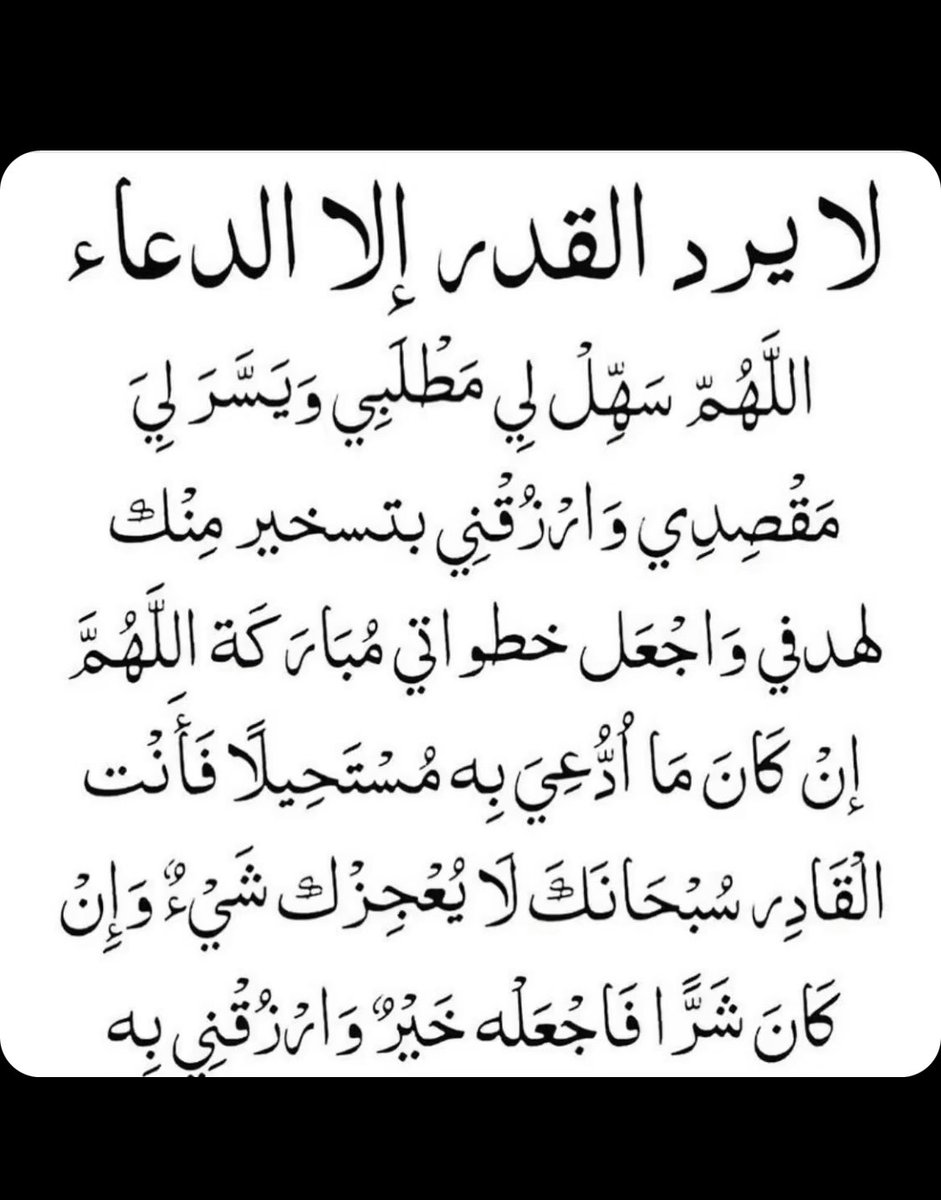 لا يرد القدر إلا الدعاء
اللَّهُمّ سَهِّلْ لِي مَطْلَبِي وَيَسَّرَ لِيَ
مَقْصِدِي وَارْزُقْنِي بتسخير مِنْك
لهدفي وَاجْعَل خطواتي مُبَارَكَة اللَّهُمَّ
إنْ كَانَ مَا اُدُّعِيَ بِه مُسْتَحِيلًا فَأَنْت
الْقَادِر سُبْحَانَكَ لَا يُعْجِزْك شَيْءٌ وَإِنْ
كَانَ شَرًّا فَاجْعَلْه خَيْرٌ وَارْزُقْنِي بِه